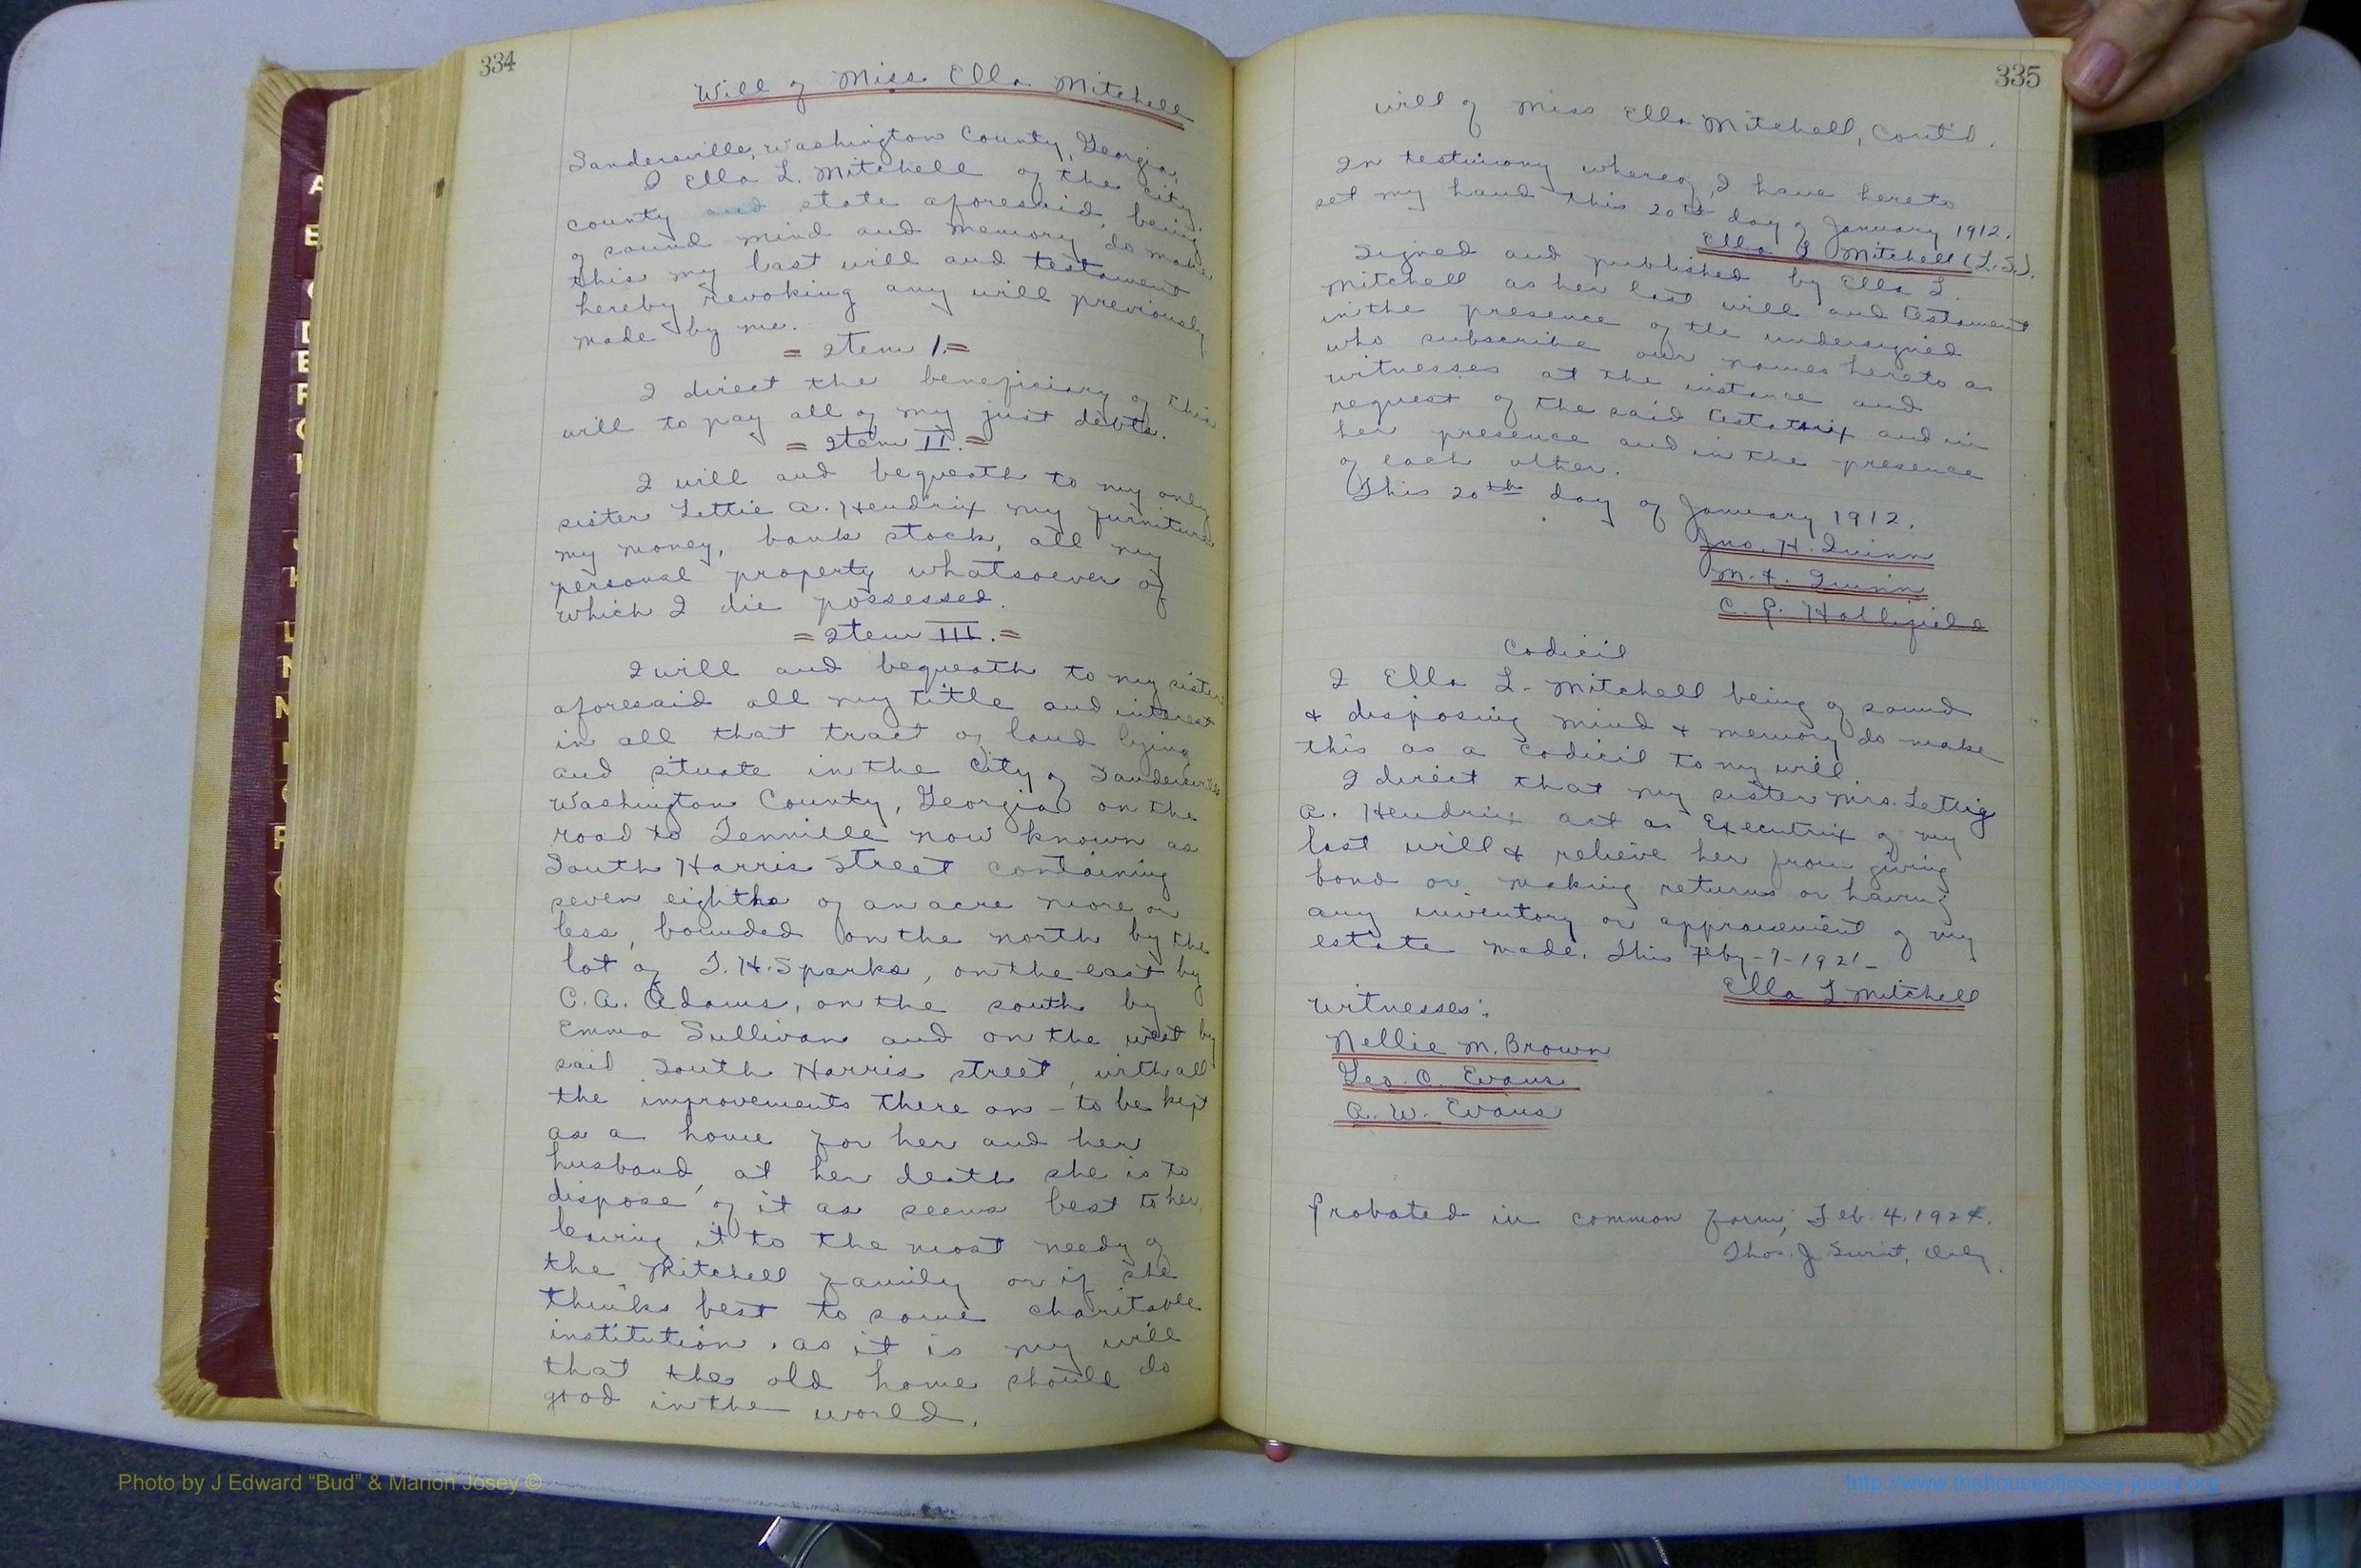 334
Will of Miss Ella Mitchell
Sandersville, Washington County, Georgia,
I Ella L. Mitchell of the city,
county and state aforesaid, being
of sound mind and memory do make
this my last will and testament
hereby revoking any will previously
made by me.
= Item 1. =
I direct the beneficiary of this
will to pay all of my just debts.
= Item II. =
I will and bequeath to my only
sister Lettie A. Hendrix my furniture
my money, bank stock, all my
personal property whatsoever of
which I die possessed.
= Item III. =
I will and bequeath to my sister
aforesaid all my title and interest
in all that tract of land lying
and situate in the City of Sandersville
Washington County, Georgia on the
road to Tennille now known as
South Harris Street containing
seven eighths of an acre more or
less, bounded on the north by the
lot of T. H. Sparks, on the east by
C. A. Adams, on the south by
Emma Sullivan and on the west by
said South Harris street, with all
the improvements there on - to be kept
as a home for her and her
husband, at her death she is to
dispose of it as seems best to her,
leaving it to the most needy of
the Mitchell family or if she
thinks best to some charitable
institution, as it is my will
that the old home should do
good in the world.
335
Will of Miss Ella Mitchell, Cont'd.
In testimony whereof, I have hereto
set my hand this 20th day of January 1912.
Ella L Mitchell (L.S.).
Signed and published by Ella L.
Mitchell as her last will and testament
in the presence of the undersigned
who subscribe our names hereto as
witnesses at the instance and
request of the said testatrix and in
her presence and in the presence
of each other.
This 20th day of January 1912.
Jno. H. Quinn
M. F. Quinn
C. P. Hollifield
Codicil
I Ella L. Mitchell being of sound
& disposing mind & memory do make
this as a codicil to my will.
I direct that my sister Mrs. Lettie
A. Hendrix act as Executrix of my
last will & relieve her from giving
bond or making returns or having
any inventory or appraisement of my
estate made. This Feby - 7 - 1921 -
Ella L Mitchell
Witnesses:
Nellie M. Brown
Geo. C. Evans
A. W. Evans
Probated in common form, Feb. 4. 1924.
Thos. J. Swint, Ordy.
Photo by J Edward “Bud” & Marion Josey ©
http://www.thehouseofjossey-josey.org